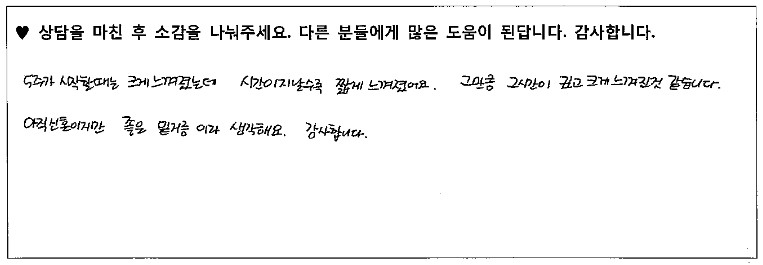 ♥ 상담을 마친 후 소감을 나눠주세요. 다른 분들에게 많은 도움이 된답니다. 감사합니다.
5주가 시작할때는 크게 느껴졌는데 시간이지날수록 짧게 느껴졌어요. 그만큼 그시간이 깊고 크게 느껴진것 같습니다.
아직신혼이지만 좋은 밑거름 이라 생각해요. 감사합니다.